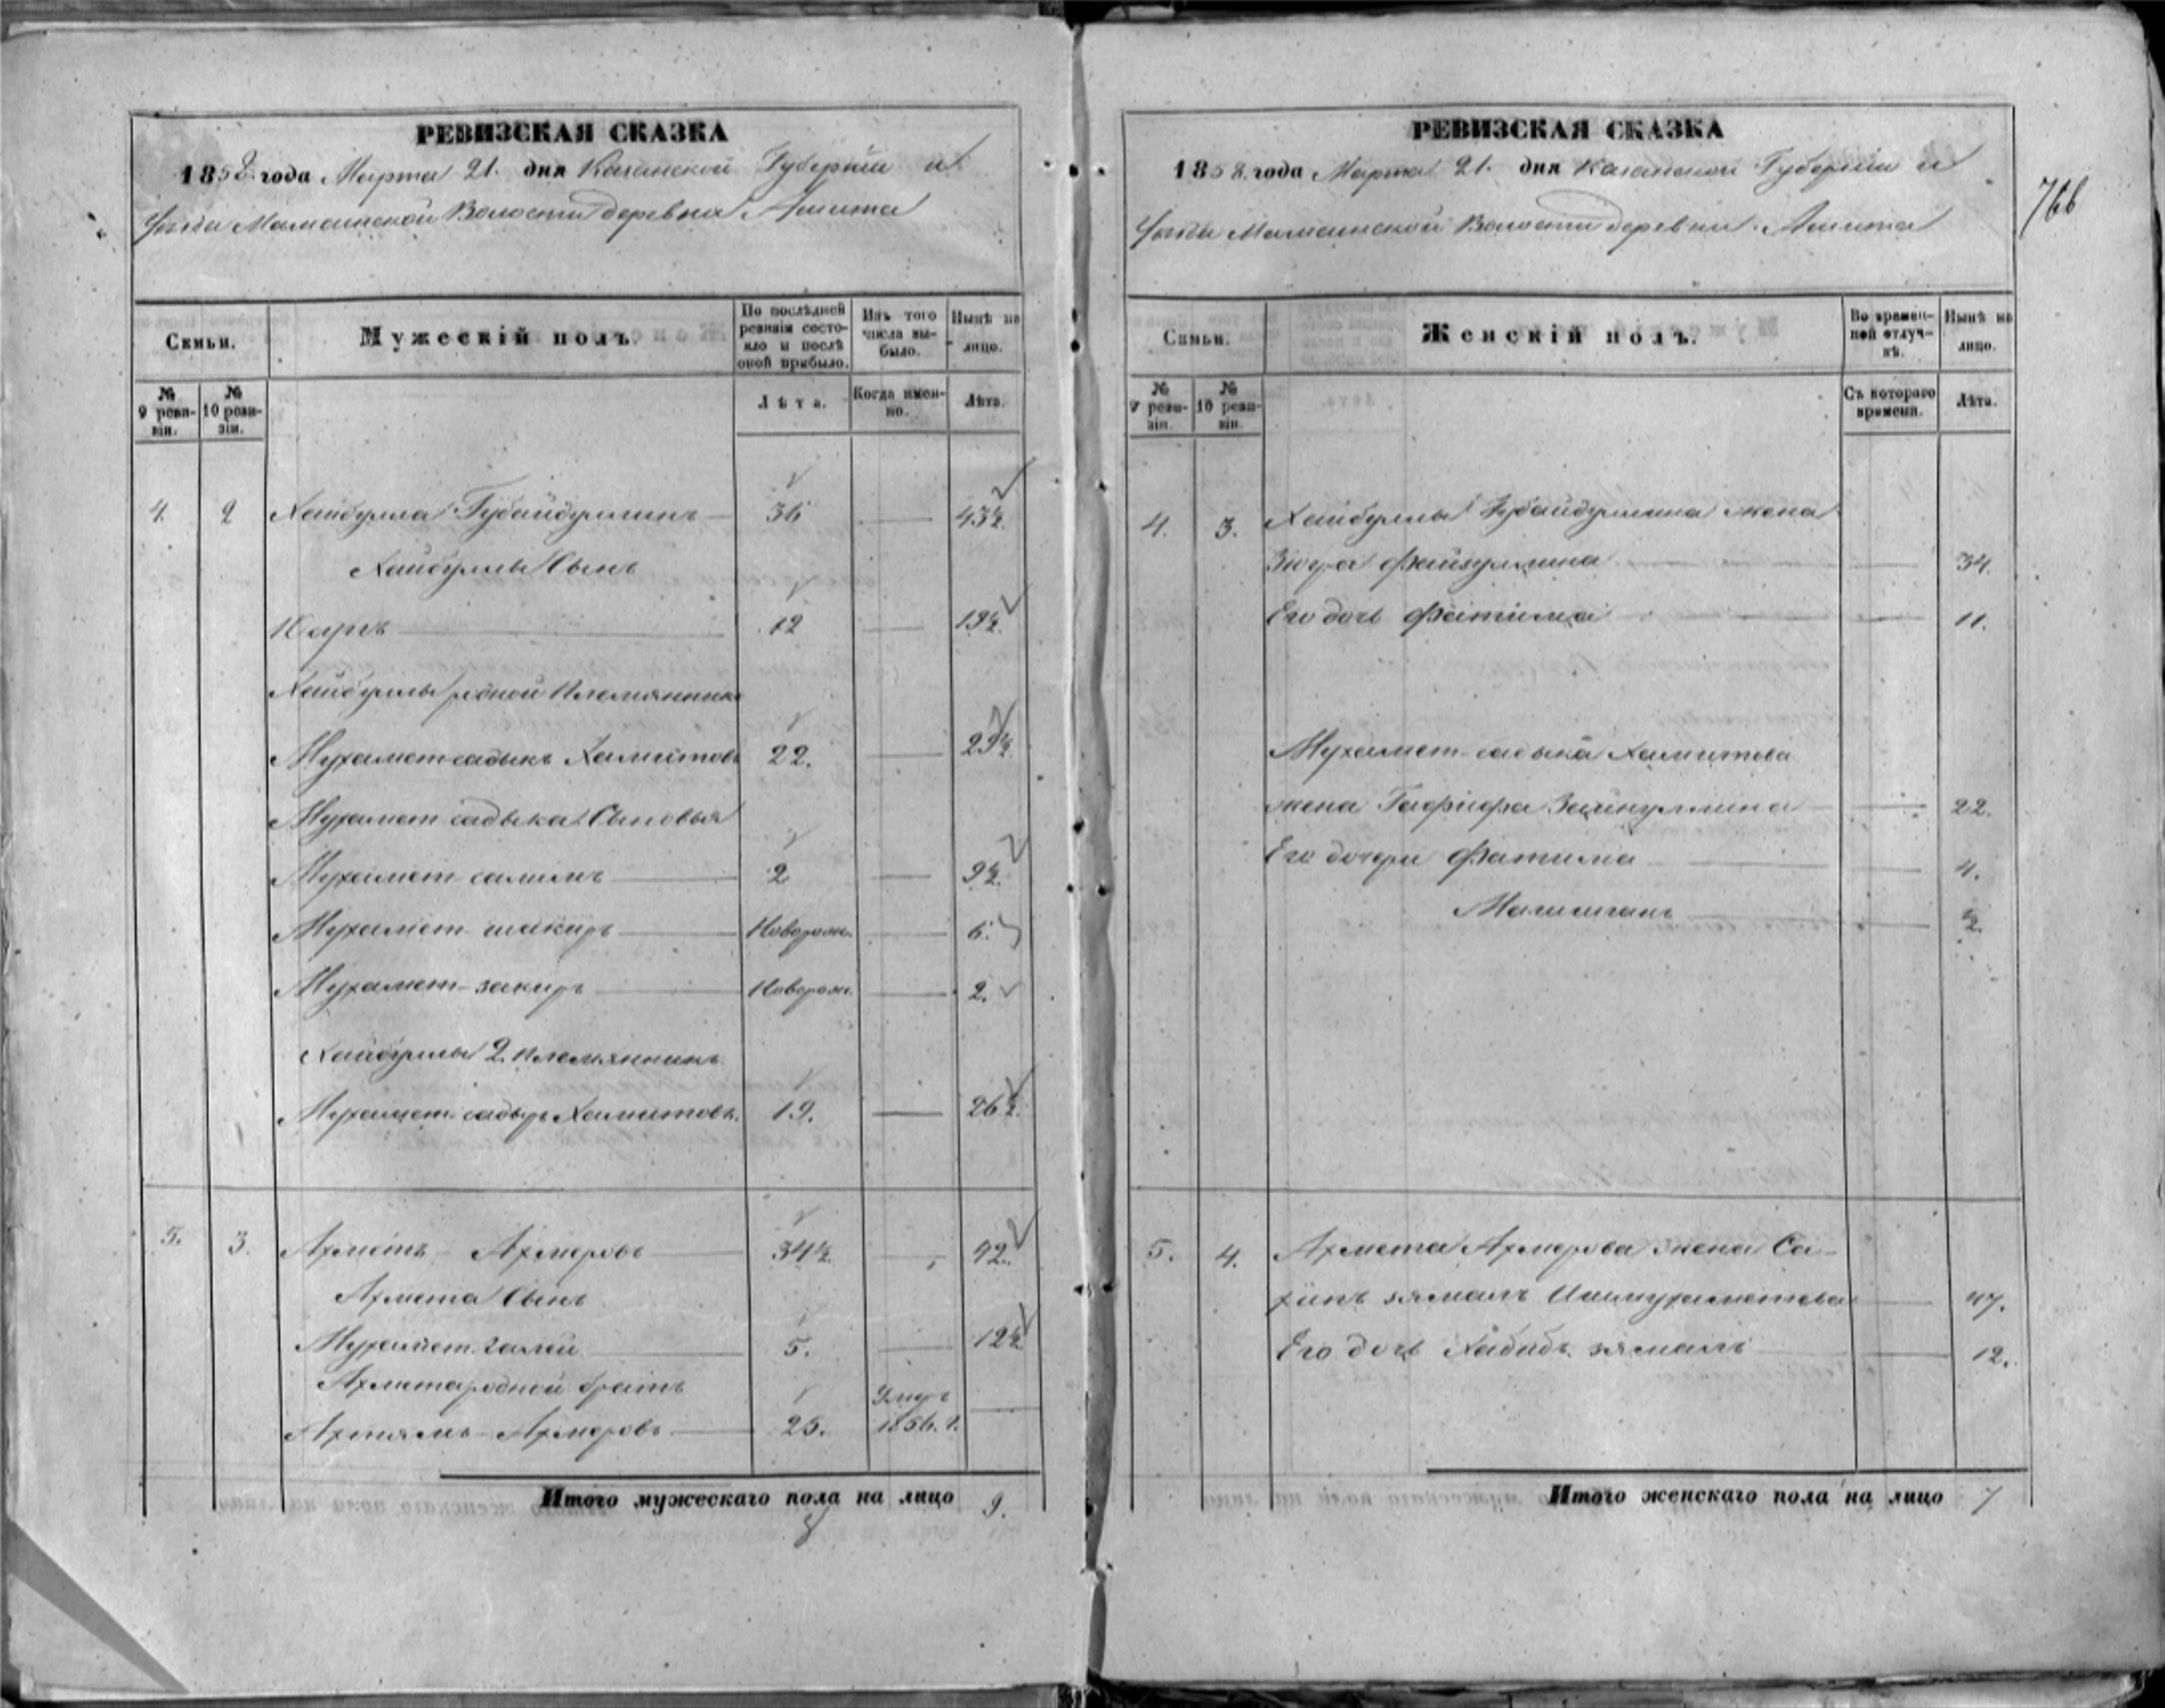 РЕВИЗСКАЯ СКАЗКА
1858 года Марта 21. дня Казанской Губернии и
Уезда Мамсинской Волости деревни Ашита
Семьи.
Мужескій полъ.
По послѣдней ревизіи состояло и послѣ оной прибыло.
Изъ того числа выбыло.
Нынѣ на лицо.
№ 9 ревизіи.
№ 10 ревизіи.
Лѣта.
Когда именно.
Лѣта.
4. 2 Хайбулла Губайдуллинъ 36 43½
Хайбуллы Сынъ
12 19½
Хайбуллы родной Племянникъ
Мухаметсадыкъ Хамитовъ 22. 29½
Мухамет садыка Сыновья
Мухамет-салимъ 2 9½
Мухамет-шакиръ Новорож. 6.
Мухамет-закиръ Новорож. 2.
Хайбуллы 2. племянникъ
Мухамет-садыръ Хамитовъ. 19. 26½
5. 3. Ахметъ Ахмеровъ 34½ 42.
Ахмета Сынъ
Мухамет-галей 5. 12½
Ахмета родной братъ
Ахтямъ Ахмеровъ 25. Умеръ 1856. г.
Итого мужескаго пола на лицо 9.
РЕВИЗСКАЯ СКАЗКА
1858. года Марта 21. дня Казанской Губерніи и
Уезда Мамсинской Волости деревни Ашита
766
Семьи.
Женскій полъ.
Во временной отлучкѣ.
Нынѣ на лицо.
№ 9 ревизіи.
№ 10 ревизіи.
Съ котораго времени.
Лѣта.
4. 3. Хайбуллы Губайдуллина жена
Зюгра Файзуллина 34.
Его дочь Фатима 11.
Мухамет-садыка Хамитова
жена Гафифа Зайнуллина 22.
Его дочери Фатима 4.
½
5. 4. Ахмета Ахмерова жена Са-
хипъ зямалъ Ишмухаметева 47.
Его дочь Хабибъ зямалъ 12.
Итого женскаго пола на лицо 7